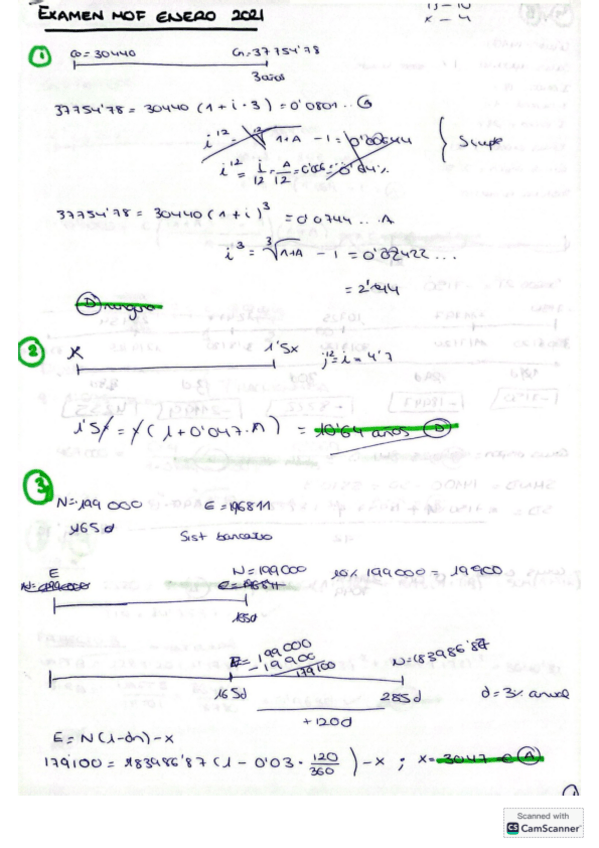 EXAMEN MOF ENERO 2021
x - 4
1
C0 = 30440
Cn = 37754'78
3 años
37754'78 = 30440 (1 + i · 3) = 0'0801..
Simple
37754'78 = 30440 (1 + i)^3 = 0'0744 ... A
i^3 = ∛1+A - 1 = 0'02422 ...
= 2'44
D ninguna
2
x
1'5x
j^12 = i = 4'7
1'5x = x (1 + 0'047 · n) = 10'64 años D
3
N = 199 000
E = 196811
165 d
Sist bancario
E
N = 199000
10% 199000 = 19900
165d
E = 199000
- 19900
179100
N = 183986'87
165d
285d
d = 3% anual
+ 120d
E = N (1 - dn) - x
179100 = 183986'87 (1 - 0'03 · 120/360) - x ; x = 3047 € A
Scanned with
CS CamScanner